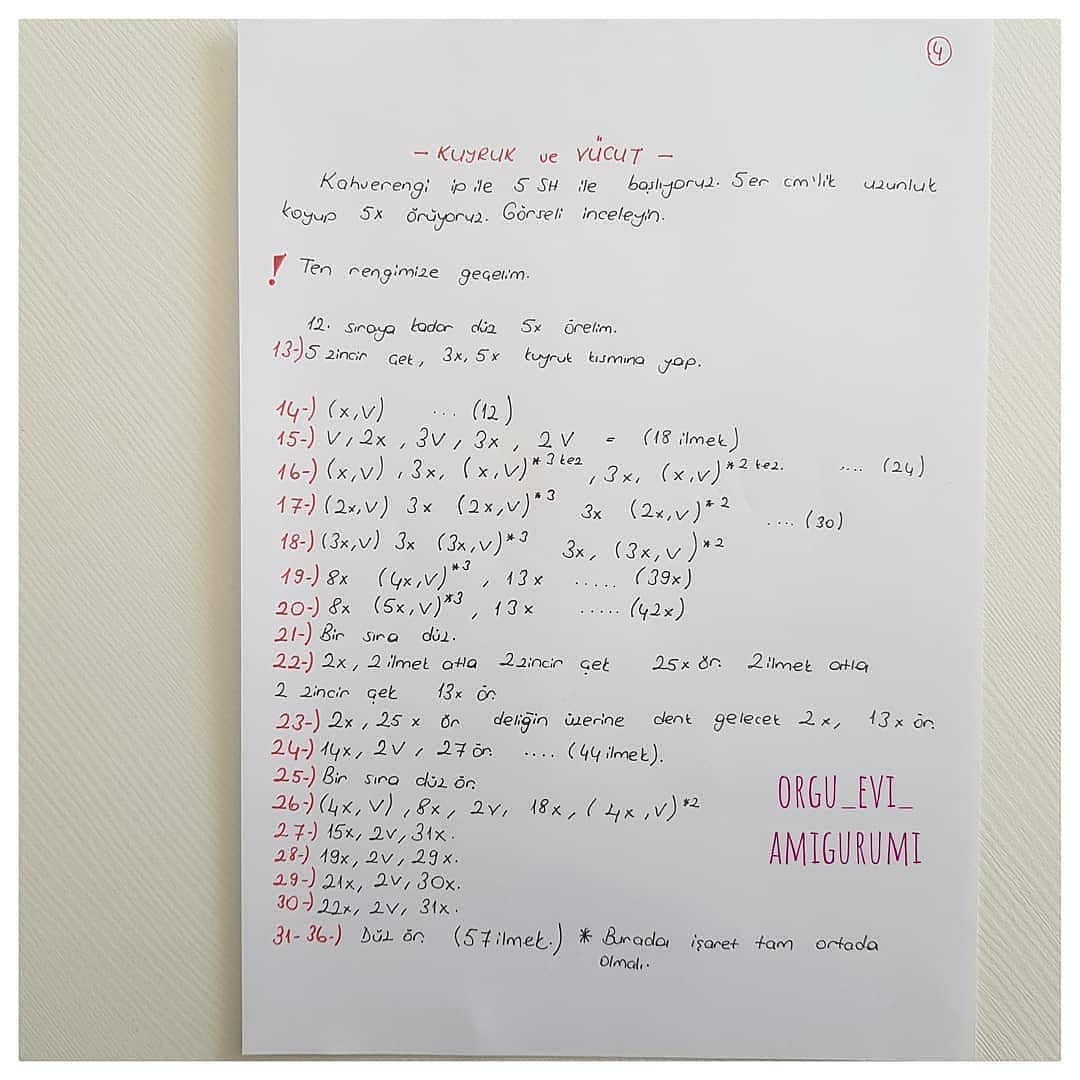 4
- KUYRUK ve VÜCUT -
Kahverengi ip ile 5 SH ile başlıyoruz. 5er cm'lik uzunluk
koyup 5x örüyoruz. Görseli inceleyin.
! Ten rengimize geçelim.
12. sıraya kadar düz 5x örelim.
13-) 5 zincir çek, 3x, 5x kuyruk kısmına yap.
14-) (x,v) ... (12)
15-) V, 2x, 3V, 3x, 2V = (18 ilmek)
16-) (x,v), 3x, (x,v)*3 kez, 3x, (x,v)*2 kez. .... (24)
17-) (2x,v) 3x (2x,v)*3 3x (2x,v)*2 .... (30)
18-) (3x,v) 3x (3x,v)*3 3x, (3x,v)*2
19-) 8x (4x,v)*3, 13x ..... (39x)
20-) 8x (5x,v)*3, 13x ..... (42x)
21-) Bir sıra düz.
22-) 2x, 2 ilmek atla 2 zincir çek 25x ör. 2 ilmek atla
2 zincir çek 13x ör.
23-) 2x, 25x ör deliğin üzerine denk gelecek 2x, 13x ör.
24-) 14x, 2V, 27 ör. .... (44 ilmek).
25-) Bir sıra düz ör.
26-) (4x, V), 8x, 2v, 18x, (4x,v)*2
27-) 15x, 2v, 31x.
28-) 19x, 2v, 29x.
29-) 21x, 2v, 30x.
30-) 22x, 2v, 31x.
31-36-) Düz ör. (57 ilmek.) * Burada işaret tam ortada
olmalı.
ORGU_EVI_
AMIGURUMI